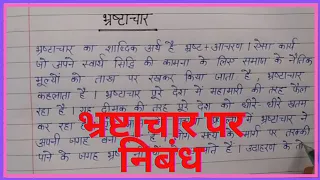 भ्रष्टाचार
भ्रष्टाचार का शाब्दिक अर्थ है भ्रष्ट + आचरण। ऐसा कार्य
जो अपने स्वार्थ सिद्धि की कामना के लिए समाज के नैतिक
मूल्यों को ताख पर रखकर किया जाता है, भ्रष्टाचार
कहलाता है। भ्रष्टाचार पूरे देश में महामारी की तरह फैल
रहा है। यह दीमक की तरह पूरे देश को धीरे-धीरे खत्म
कर रहा है
भ्रष्टाचार ने
अपनी जगह
के मार्ग पर तरक्की
पाने के जगह भ्रष्ट
हैं। उदाहरण के
भ्रष्टाचार पर
निबंध